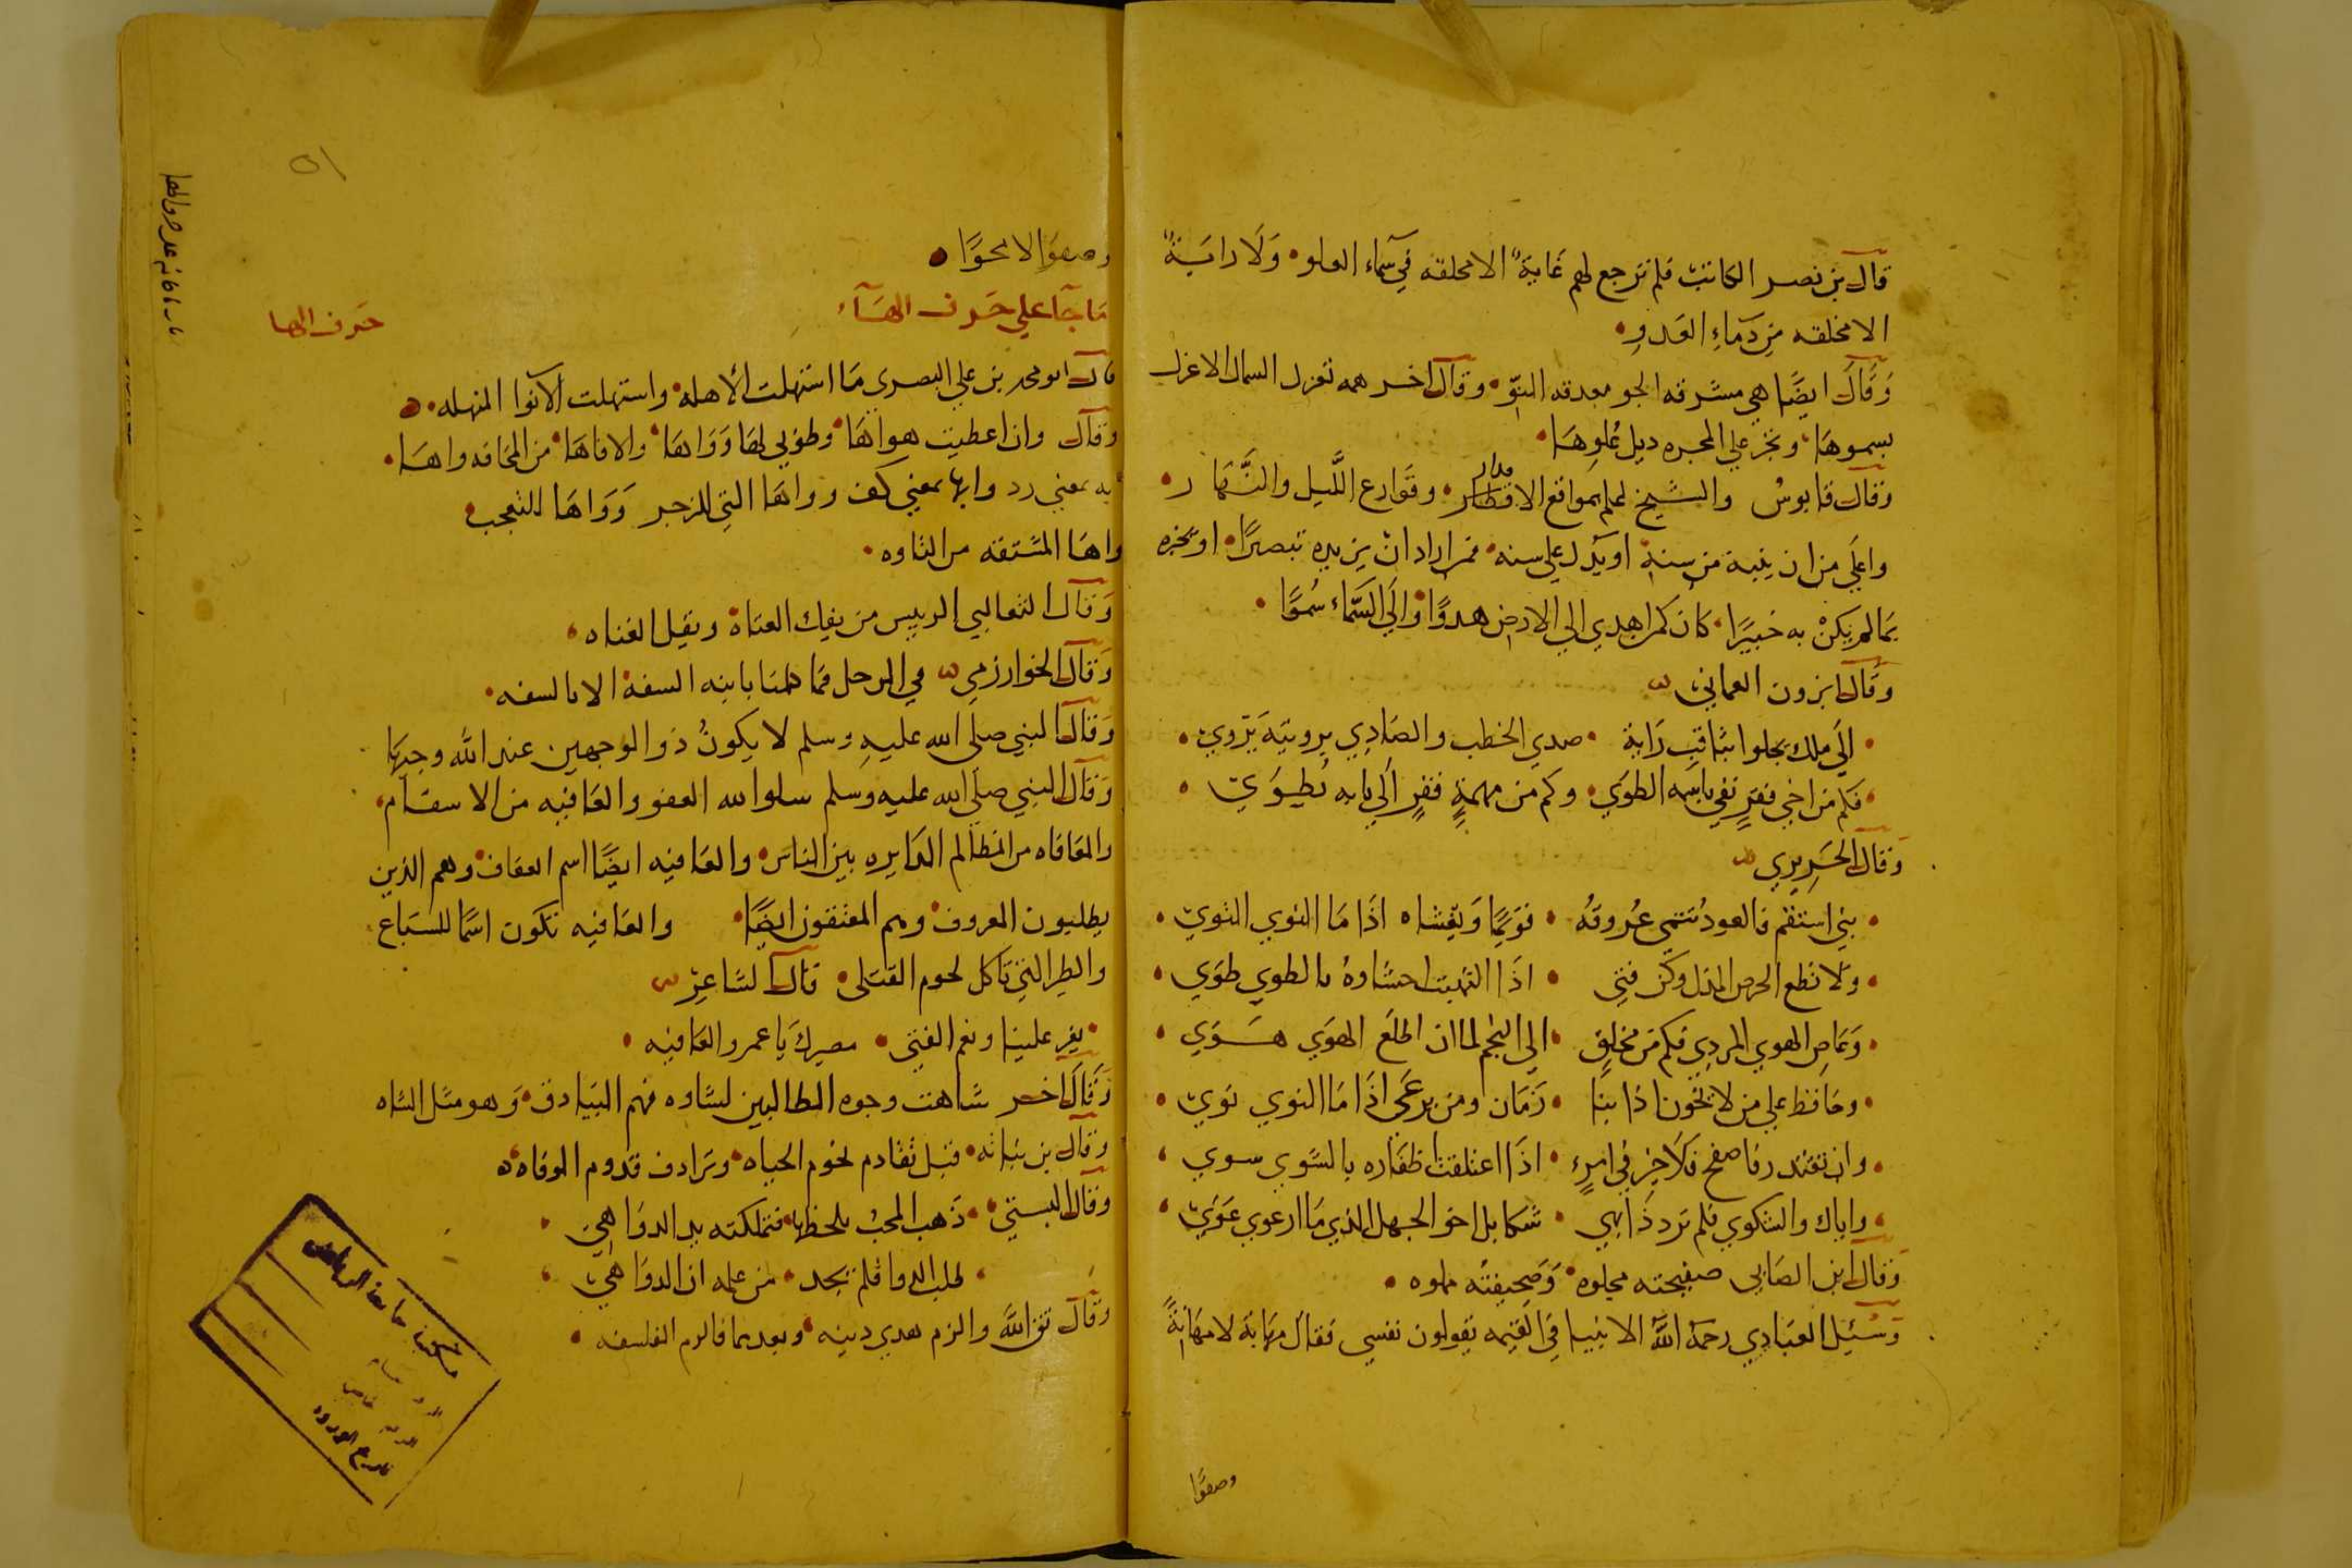 قال بن نصر الكاتب فلم ترجع لهم غاية الا محلقه في سماء العلو ولا راية
الا مخلقه من دماء العدو
وقال ايضا هي مشرقه الجو معدقه النو وقال اخر همه تعزل السماك الاعزل
بسموها وتجر علي المجره ديل علوها
وقال قابوس والشيخ لعلم بمواقع الاقطار وقوارع الليل والنهار
واعلي من ان ينبه من سنة او يدل علي سنه فمن اراد ان يزيده تبصرا او يخبره
بما لم يكن به خبيرا كان كمن اهدي الي الارض هدوا والي السماء سموا
وقال بزون العماني
الي ملك يجلوا بثاقب راية صدي الخطب والصادي برويته يروي
فكم من اخي فقر نفي باسمه الطوي وكم من مهمة قفر الي بابه نطوي
وقال الحريري
بني استقم فالعود تنمي عروقه قويما ويغشاه اذا ما التوي التوي
ولا تطع الحرص المذل وكن فتي اذا التهبت احشاوه بالطوي طوي
وعاص الهوي المردي فكم من محلق الي النجم لما ان اطاع الهوي هوي
وحافظ علي من لا يخون اذا نبا زمان ومن يرعي اذا ما النوي نوي
وان تقتدر فاصفح فلا خير في امرء اذا اعتلقت اظفاره بالشوي سوي
واياك والشكوي فلم تر ذا نهي شكا بل اخو الجهل الذي ما ارعوي عوي
وقال ابن الصابي صفيحته مجلوه وصحيفته مملوه
وسئيل العبادي رحمه الله الانبيا في القيمه يقولون نفسي فقال مهابة لا مهانة
وصفوا
٥١
وصفوا الا محوا
ما جآ علي حرف الهآء
حرف الها
قال ابو محمد بن علي البصري ما استهلت الأهله واستهلت الانوا المنهله
وقال وان اعطيت هواها وطوبي لها وواها والا فاها من المخافه واها
ايه بمعني رد وايها بمعني كف وواها التي للزجر وواها للتعجب
واها المشتقه من التاوه
وقال الثعالبي الرييس من يفك العناة ويقيل العناه
وقال الخوارزمي في الرجل فما ظننا بابنه السفه الا بالسفه
وقال النبي صلي الله عليه وسلم لا يكون ذو الوجهين عند الله وجيها
وقال النبي صلي الله عليه وسلم سلوا الله العفو والعافيه من الاسقام
والمعافاه من المظالم الدايره بين الناس والعافيه ايضا اسم العفاف وهم الذين
يطلبون المعروف وهم المعتفون ايضا والعافيه تكون اسما للسباع
والطير التي تاكل لحوم القتلي قال الشاعر
يعز علينا ونعم الفتي مصيرك يا عمرو العافيه
وقال اخر شاهت وجوه الطالبين لشاوه فهم البيادق وهو مثل الشاه
وقال بن نباته قبل تقادم نخوم الحياه وترادف قدوم الوفاه
وقال البستي ذهب المحب بلحظها فتملكته يد الدواهي
طلب الدوا فلم يجد من علمه ان الدوا هي
وقال تق الله والزم هدي دينه وبعدهما فالزم الفلسفه
مكتبة جامعة الرياض
تاريخ الورود